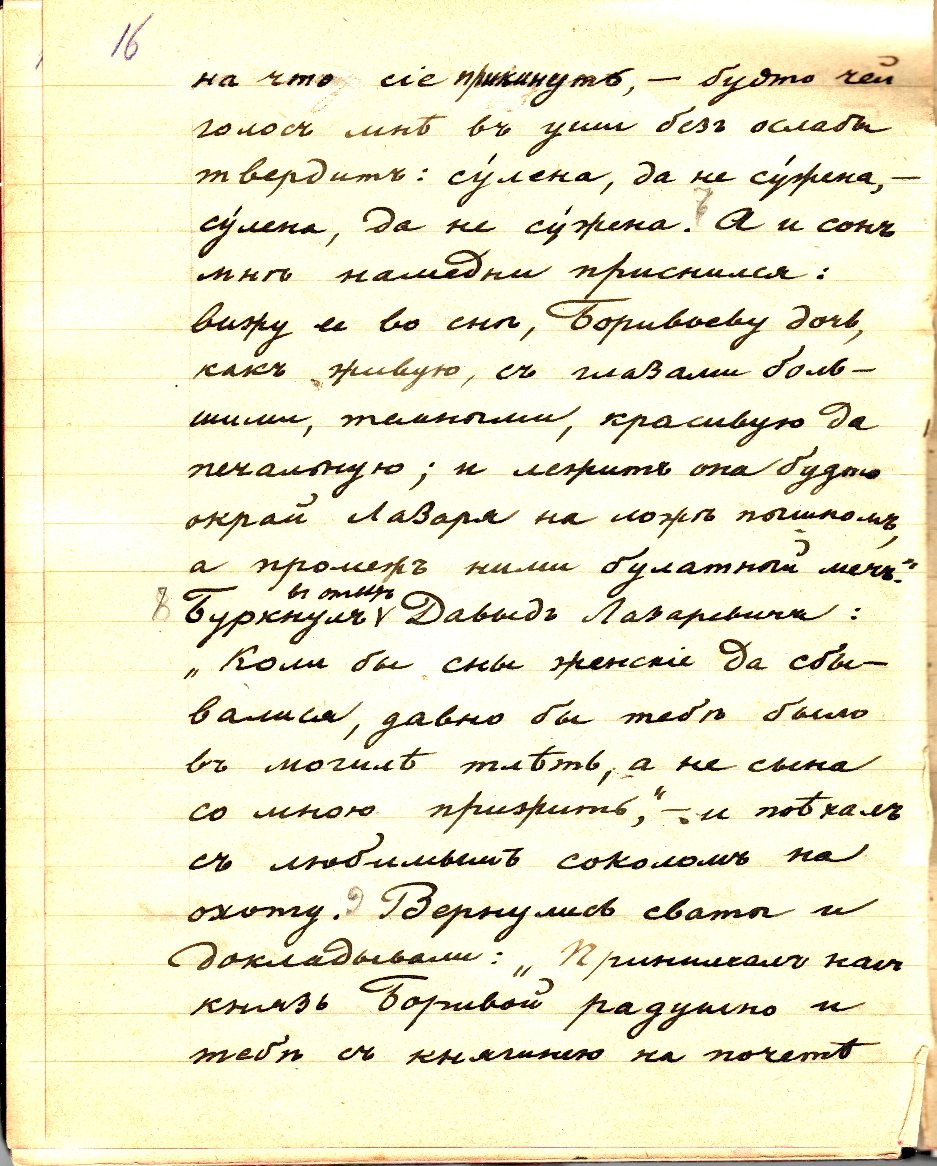 16
на что сіе прикинуть, — будто чей
голосъ мнѣ въ уши безъ ослабы
твердитъ: су́лена, да не су́жена, —
су́лена, да не су́жена. А и сонъ
мнѣ намедни приснился:
вижу ее во снѣ, Боривоеву дочь,
какъ живую, съ глазами боль-
шими, темными, красивую да
печальную; и лежитъ она будто
окрай Лазаря на ложѣ пышномъ,
а промежъ ними булатный мечъ."
въ отвѣтъ
Буркнулъ Давыдъ Лазаревичъ:
„Коли бы сны женскіе да сбы-
валися, давно бы тебѣ было
въ могилѣ тлѣть, а не сына
со мною прижить," — и поѣхалъ
съ любимымъ соколомъ на
охоту. Вернулись сваты и
докладывали: „Принималъ насъ
князь Боривой радушно и
тебѣ съ княгинею на почетѣ